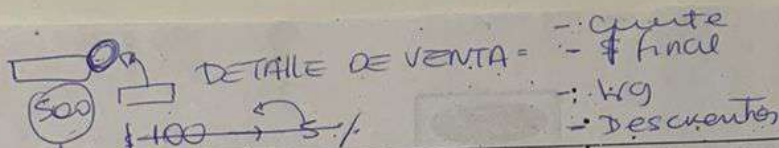 DETALLE DE VENTA =
- $ final
- KG
- Descuentos
500
$ 100 → 5 %